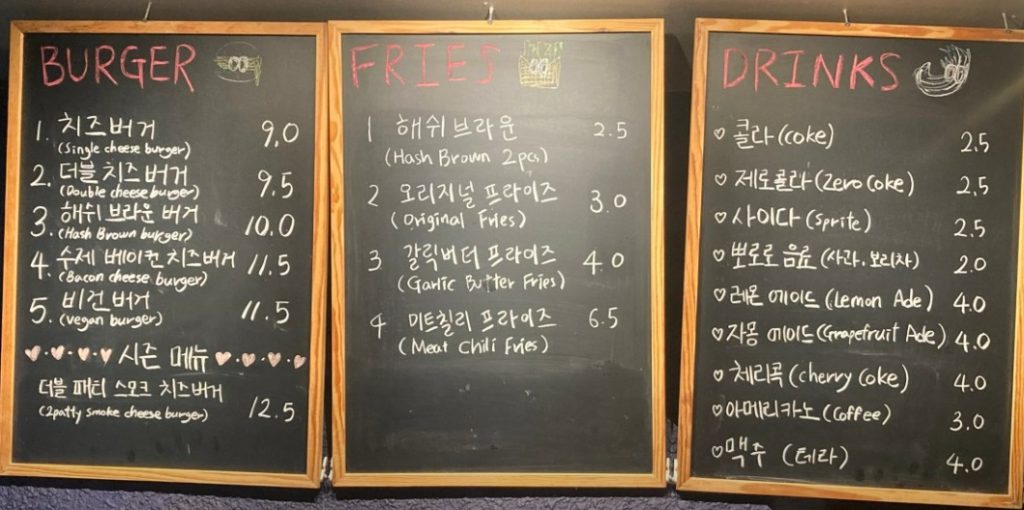 BURGER
1. 치즈버거 9.0
(Single cheese burger)
2. 더블 치즈버거 9.5
(Double cheese burger)
3. 해쉬 브라운 버거 10.0
(Hash Brown burger)
4. 수제 베이컨 치즈버거 11.5
(Bacon cheese burger)
5. 비건 버거 11.5
(vegan burger)
시즌 메뉴
더블 패티 스모크 치즈버거 12.5
(2patty smoke cheese burger)
FRIES
1 해쉬브라운 2.5
(Hash Brown 2pcs)
2 오리지널 프라이즈 3.0
(Original Fries)
3 갈릭버터 프라이즈 4.0
(Garlic Butter Fries)
4 미트칠리 프라이즈 6.5
(Meat Chili Fries)
DRINKS
♡ 콜라 (coke) 2.5
♡ 제로콜라 (Zero Coke) 2.5
♡ 사이다 (Sprite) 2.5
♡ 뽀로로 음료 (사과.보리차) 2.0
♡ 레몬 에이드 (Lemon Ade) 4.0
♡ 자몽 에이드 (Grapefruit Ade) 4.0
♡ 체리콕 (cherry Coke) 4.0
♡ 아메리카노 (Coffee) 3.0
♡ 맥주 (테라) 4.0